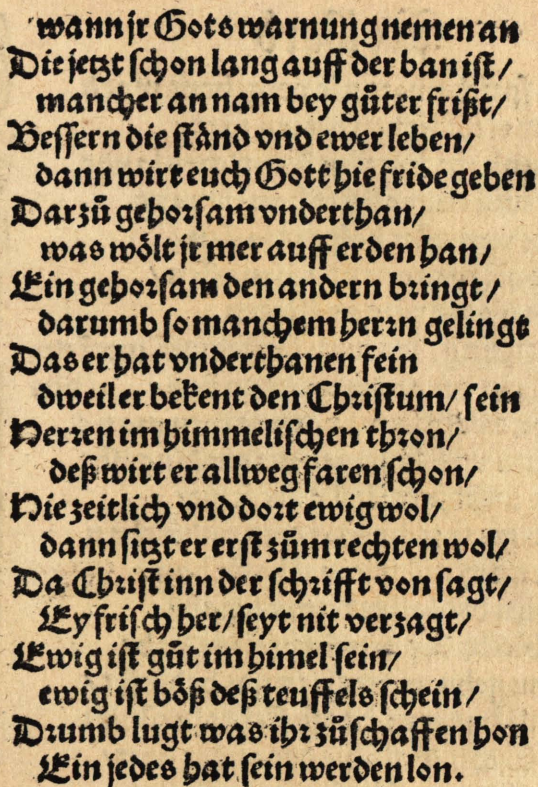 wann jr Gots warnung nemen an
Die jetzt schon lang auff der ban ist /
mancher an nam bey gůter frißt /
Bessern die ständ vnd ewer leben /
dann wirt euch Gott hie fride geben
Darzů gehorsam vnderthan /
was wölt jr mer auff erden han /
Ein gehorsam den andern bringt /
darumb so manchem herrn gelingt
Das er hat vnderthanen fein
dweil er bekent den Christum / sein
Herren im himmelischen thron /
deß wirt er allweg faren schon /
Hie zeitlich vnd dort ewig wol /
dann sitzt er erst zům rechten wol /
Da Christ inn der schrifft von sagt /
Ey frisch her / seyt nit verzagt /
Ewig ist gůt im himel sein /
ewig ist böß deß teuffels schein /
Drumb lugt was ihr zůschaffen hon
Ein jedes hat sein werden lon.